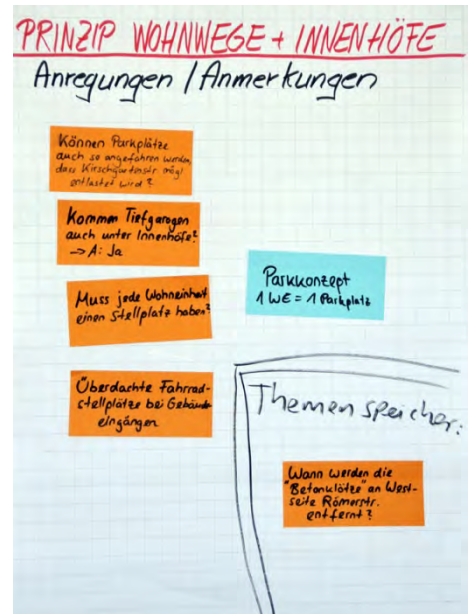 PRINZIP WOHNWEGE + INNENHÖFE
Anregungen / Anmerkungen
Können Parkplätze
auch so angefahren werden,
dass Kirschgartenstr. mögl.
entlastet wird?
Kommen Tiefgaragen
auch unter Innenhöfe?
-> A: Ja
Muss jede Wohneinheit
einen Stellplatz haben?
Parkkonzept
1 WE = 1 Parkplatz
Überdachte Fahrrad-
stellplätze bei Gebäude
eingängen
Themenspeicher:
Wann werden die
"Betonklötze" an West-
seite Römerstr.
entfernt?